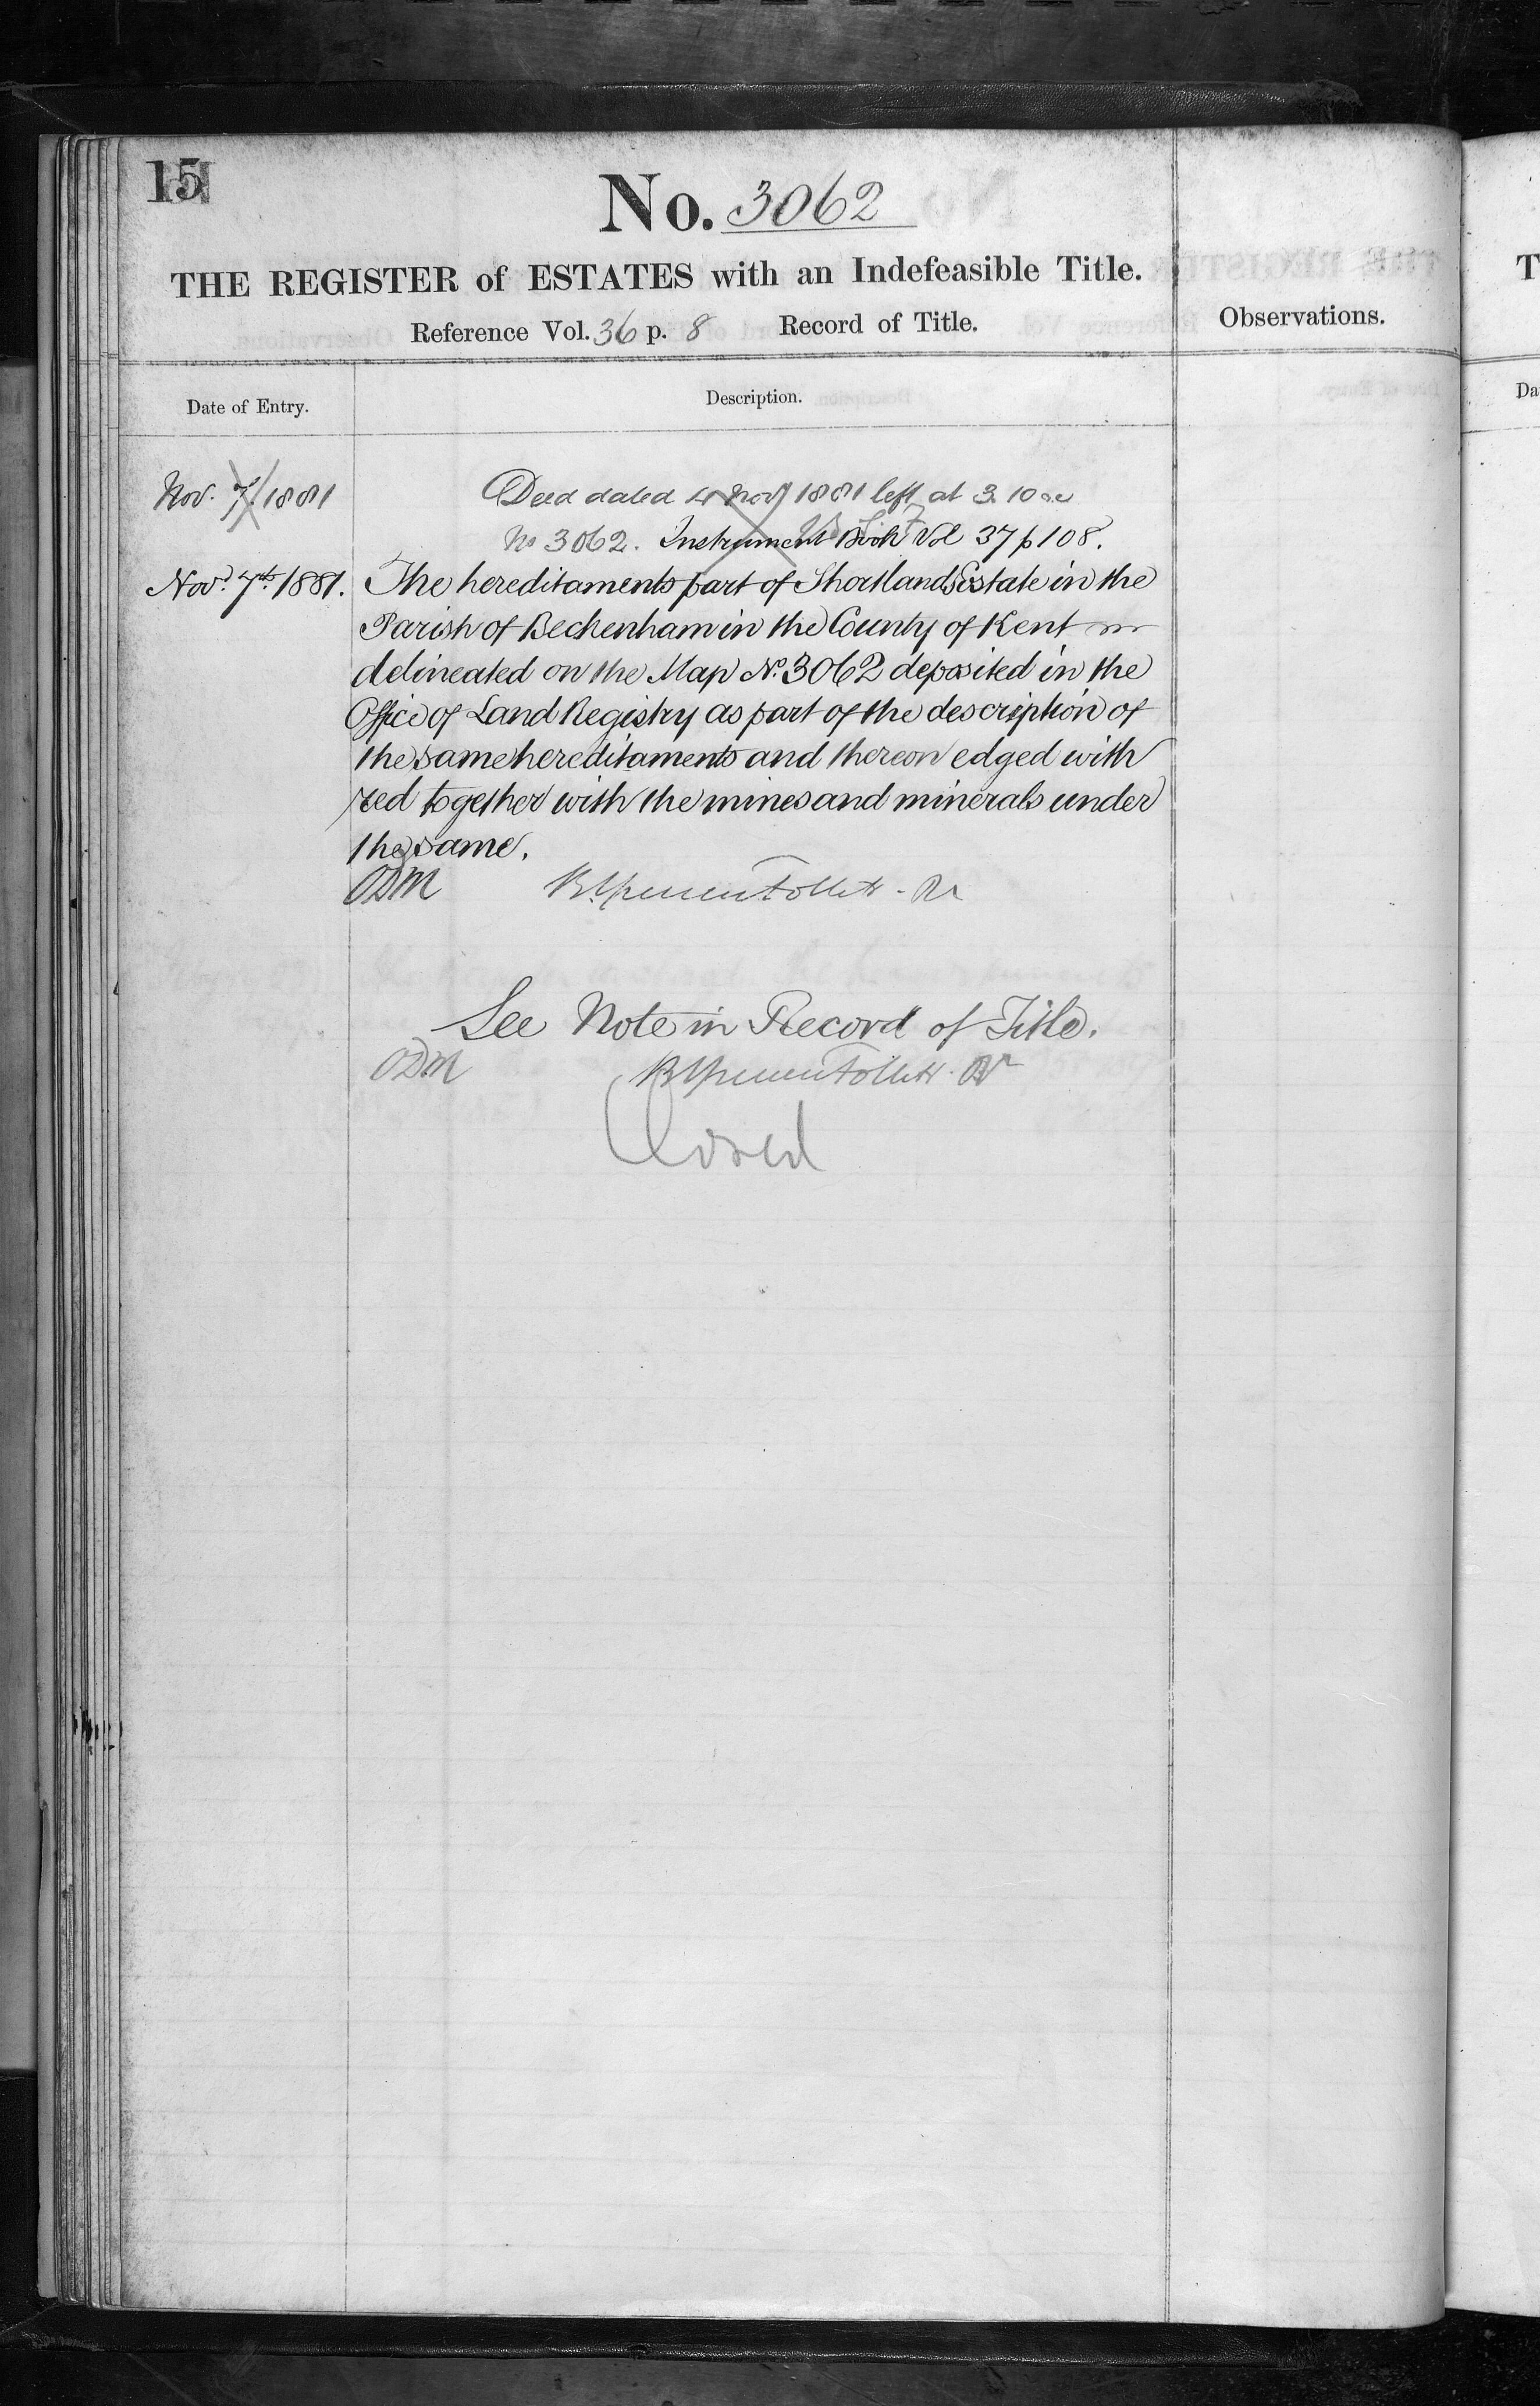 15
No. 3062
THE REGISTER of ESTATES with an Indefeasible Title.
Reference Vol. 36 p. 8 Record of Title.
Observations.
Date of Entry.
Description.
Nov. 7. 1881
Deed dated 4 Nov 1881 left at 3.10
No 3062. Instrument Book Vol 37 p 108.
Nov. 7th 1881. The hereditaments part of Shortlands Estate in the
Parish of Beckenham in the County of Kent
delineated on the Map No. 3062 deposited in the
Office of Land Registry as part of the description of
the same hereditaments and thereon edged with
red together with the mines and minerals under
the same.
ODM Follett
See Note in Record of Title.
ODM Follett
Closed
T
Da